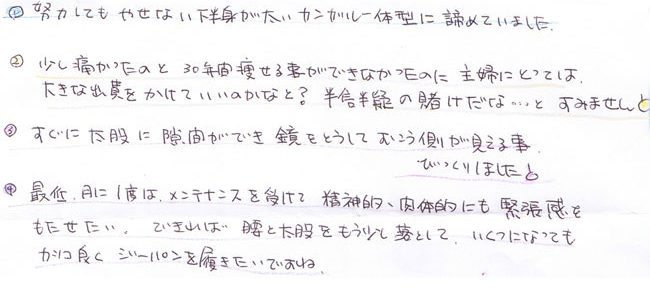 ① 努力しても やせない下半身が太いカンガルー体型に 諦めていました。
② 少し痛かったのと 30年間痩せる事ができなかったのに 主婦にとっては、
大きな出費をかけていいのかなと? 半信半疑の賭けだな…と すみませんと
③ すぐに 太股に 隙間ができ 鏡をとうして むこう側が見える事、
びっくりしましたよ
④ 最低、月に1度は、メンテナンスを受けて 精神的、肉体的にも 緊張感を
もたせたい。 できれば 腰と太股をもう少し落として、いくつになっても
カッコ良く ジーパンを履きたいですね。